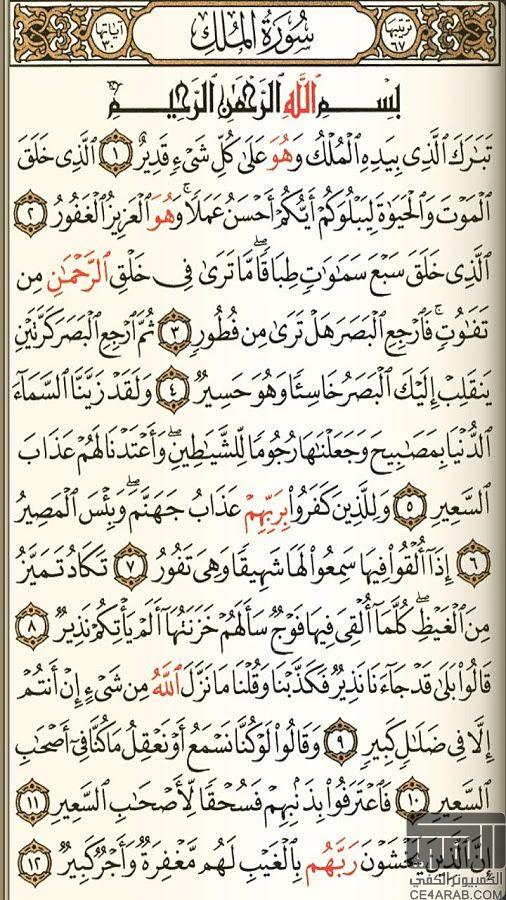 ترتيبها ٦٧ سُورَةُ المُلْكِ آياتها ٣٠
بِسْمِ ٱللَّهِ ٱلرَّحْمَٰنِ ٱلرَّحِيمِ
تَبَٰرَكَ ٱلَّذِى بِيَدِهِ ٱلْمُلْكُ وَهُوَ عَلَىٰ كُلِّ شَىْءٍ قَدِيرٌ ١ ٱلَّذِى خَلَقَ
ٱلْمَوْتَ وَٱلْحَيَوٰةَ لِيَبْلُوَكُمْ أَيُّكُمْ أَحْسَنُ عَمَلًا ۚ وَهُوَ ٱلْعَزِيزُ ٱلْغَفُورُ ٢
ٱلَّذِى خَلَقَ سَبْعَ سَمَٰوَٰتٍ طِبَاقًا ۖ مَّا تَرَىٰ فِى خَلْقِ ٱلرَّحْمَٰنِ مِن
تَفَٰوُتٍ ۖ فَٱرْجِعِ ٱلْبَصَرَ هَلْ تَرَىٰ مِن فُطُورٍ ٣ ثُمَّ ٱرْجِعِ ٱلْبَصَرَ كَرَّتَيْنِ
يَنقَلِبْ إِلَيْكَ ٱلْبَصَرُ خَاسِئًا وَهُوَ حَسِيرٌ ٤ وَلَقَدْ زَيَّنَّا ٱلسَّمَآءَ
ٱلدُّنْيَا بِمَصَٰبِيحَ وَجَعَلْنَٰهَا رُجُومًا لِّلشَّيَٰطِينِ ۖ وَأَعْتَدْنَا لَهُمْ عَذَابَ
ٱلسَّعِيرِ ٥ وَلِلَّذِينَ كَفَرُوا۟ بِرَبِّهِمْ عَذَابُ جَهَنَّمَ ۖ وَبِئْسَ ٱلْمَصِيرُ
٦ إِذَآ أُلْقُوا۟ فِيهَا سَمِعُوا۟ لَهَا شَهِيقًا وَهِىَ تَفُورُ ٧ تَكَادُ تَمَيَّزُ
مِنَ ٱلْغَيْظِ ۖ كُلَّمَآ أُلْقِىَ فِيهَا فَوْجٌ سَأَلَهُمْ خَزَنَتُهَآ أَلَمْ يَأْتِكُمْ نَذِيرٌ ٨
قَالُوا۟ بَلَىٰ قَدْ جَآءَنَا نَذِيرٌ فَكَذَّبْنَا وَقُلْنَا مَا نَزَّلَ ٱللَّهُ مِن شَىْءٍ إِنْ أَنتُمْ
إِلَّا فِى ضَلَٰلٍ كَبِيرٍ ٩ وَقَالُوا۟ لَوْ كُنَّا نَسْمَعُ أَوْ نَعْقِلُ مَا كُنَّا فِىٓ أَصْحَٰبِ
ٱلسَّعِيرِ ١٠ فَٱعْتَرَفُوا۟ بِذَنۢبِهِمْ فَسُحْقًا لِّأَصْحَٰبِ ٱلسَّعِيرِ ١١
إِنَّ ٱلَّذِينَ يَخْشَوْنَ رَبَّهُم بِٱلْغَيْبِ لَهُم مَّغْفِرَةٌ وَأَجْرٌ كَبِيرٌ ١٢
الكمبيوتر الكفي
CE4ARAB.COM